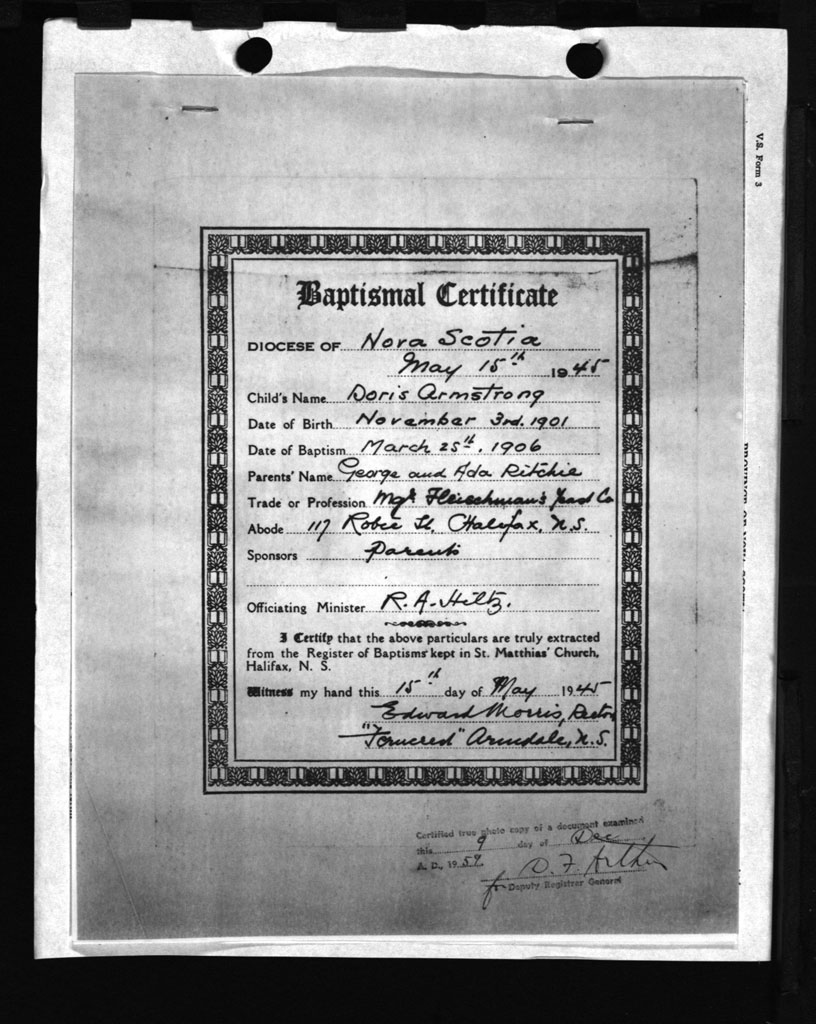 V.S. Form 3
Baptismal Certificate
DIOCESE OF Nova Scotia
May 15th 1945
Child's Name Doris Armstrong
Date of Birth November 3rd, 1901
Date of Baptism March 25th, 1906
Parents' Name George and Ada Ritchie
Trade or Profession Mgr Fleischman's Co
Abode 117 Robie St, Halifax, N.S.
Sponsors Parents
Officiating Minister R. A. Hiltz.
I Certify that the above particulars are truly extracted
from the Register of Baptisms kept in St. Matthias' Church,
Halifax, N. S.
Witness my hand this 15th day of May 1945
Edward Morris, Rector
Armdale, N.S.
Certified true photo copy of a document examined
this 9 day of Dec
A. D., 1959
for Deputy Registrar General